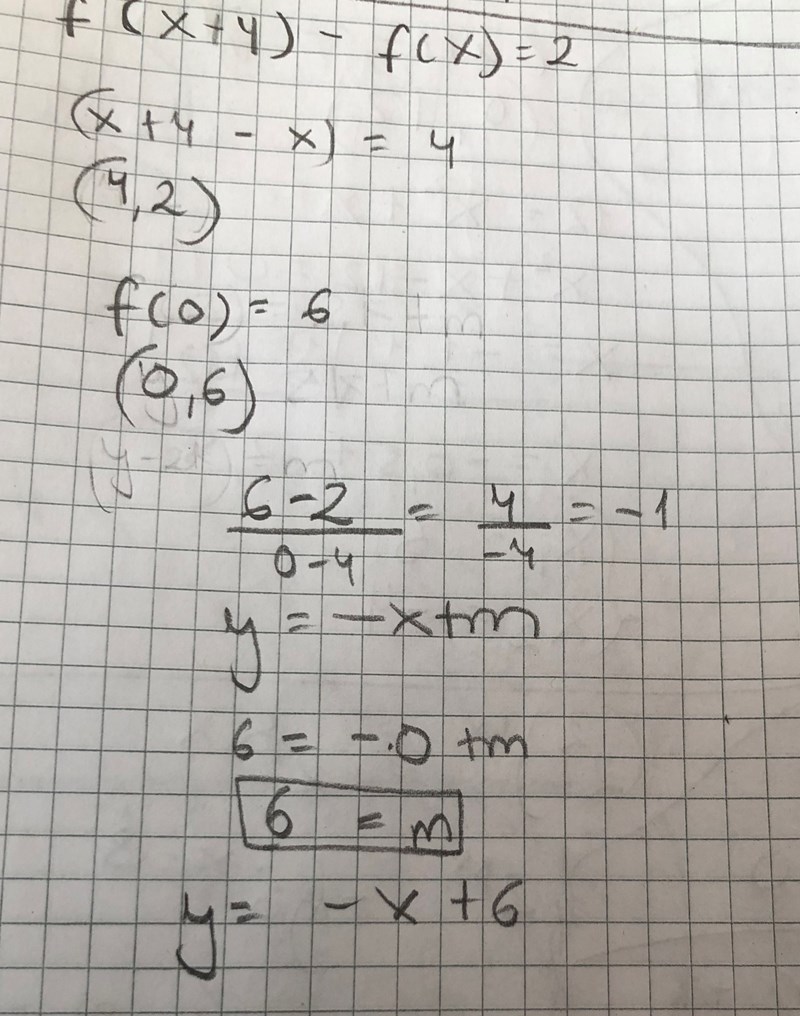 f(x+4) - f(x) = 2
(x+4 - x) = 4
(4,2)
f(0) = 6
(0,6)
6-2/0-4 = 4/-4 = -1
y = -x+m
6 = -.0 +m
6 = m
y = -x +6